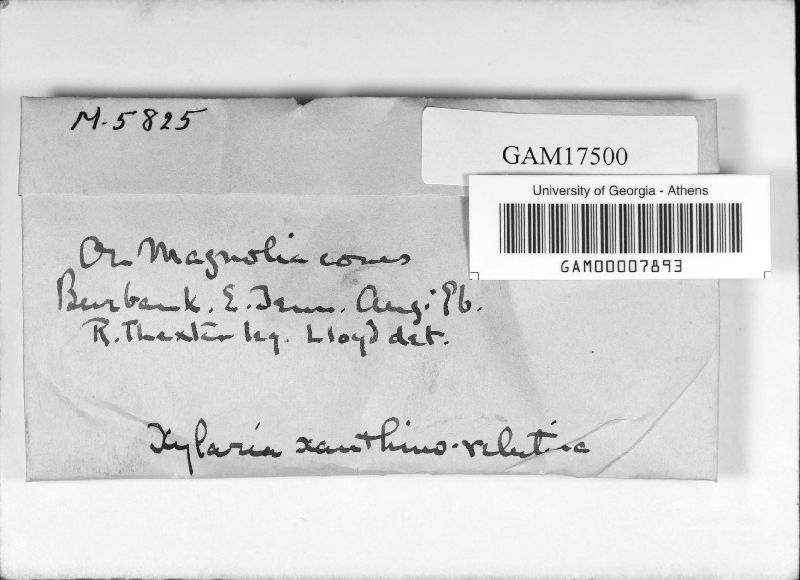 M-5825
GAM17500
University of Georgia - Athens
GAM00007893
On Magnolia cones
Burbank. E. Tenn. Aug. '96.
R. Thaxter leg. Lloyd det.
Xylaria xanthino-velutina